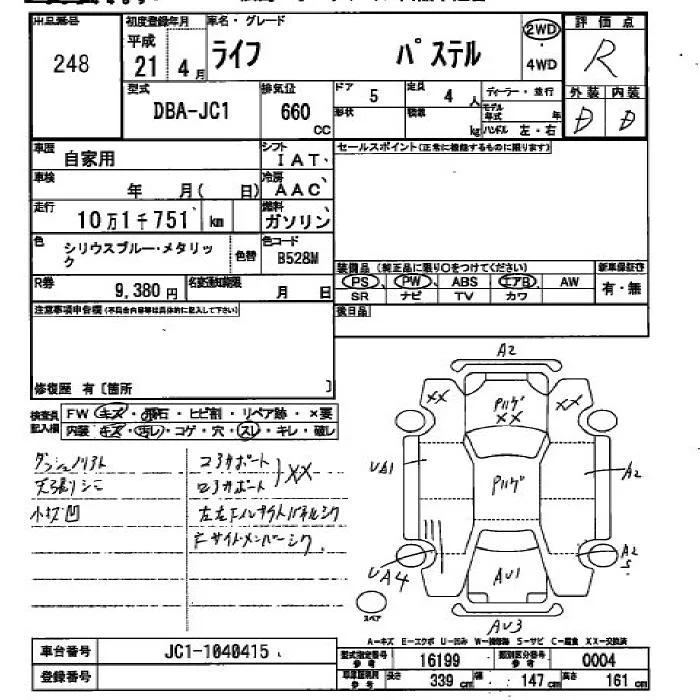 出品番号
248
初度登録年月
平成
21 4月
車名・グレード
ライフ パステル
2WD
・
4WD
評価点
R
外装 内装
D D
型式
DBA-JC1
排気量
660
CC
ドア
5
形状
定員
4 人
積載
kg
ディーラー・並行
モデル年式 年
ハンドル 左・右
車歴
自家用
シフト
IAT
車検
年 月( 日)
冷房
AAC
走行
10万1千751 km
燃料
ガソリン
色
シリウスブルー・メタリック
色替
色コード
B528M
R券
9,380円
名変通知期限
月 日
セールスポイント(正常に機能するものに限ります)
装備品 (純正品に限り○をつけてください)
PS PW ABS エアB AW
SR ナビ TV カワ
新車保証書
有・無
後日品
注意事項申告欄(不具合内容等は具体的に記入して下さい)
修復歴 有〔箇所 〕
検査員記入欄
FW キズ・飛石・ヒビ割・リペア跡・×要
内装 キズ・汚レ・コゲ・穴・スレ・キレ・破レ
天張りシミ
小技凹
コアサポート
XX
A2
XX
XX
XX
UA1
A2
UA4
A2
S
AU1
AU3
スペア
A−キズ E−エクボ U−凹み W−補修跡 S−サビ C−腐食 XX−交換済
車台番号
JC1-1040415
登録番号
型式指定番号
参考
16199
類別区分番号
参考
0004
車庫証明用
参考
長さ 339 cm
巾 147 cm
高さ 161 cm